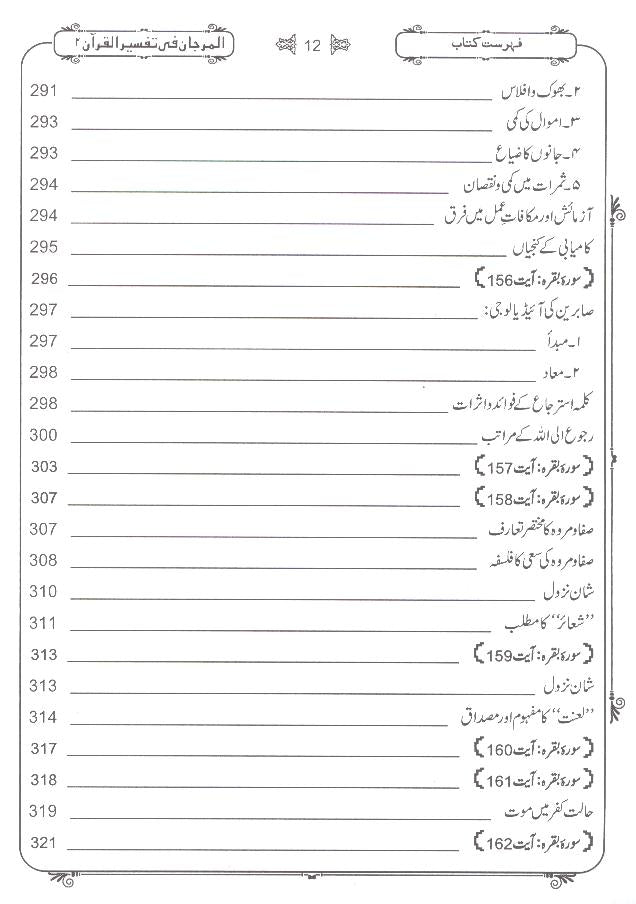 فہرست کتاب 12 المرجان فی تفسیر القرآن ۲
۲۔بھوک وافلاس 291
۳۔اموال کی کمی 293
۴۔جانوں کا ضیاع 293
۵۔ثمرات میں کمی ونقصان 294
آزمائش اور مکافاتِ عمل میں فرق 294
کامیابی کے کنجیاں 295
﴿سورۂ بقرہ: آیت 156﴾ 296
صابرین کی آئیڈیالوجی: 297
۱۔مبدأ 297
۲۔معاد 298
کلمہ استرجاع کے فوائد واثرات 298
رجوع الی اللہ کے مراتب 300
﴿سورۂ بقرہ: آیت 157﴾ 303
﴿سورۂ بقرہ: آیت 158﴾ 307
صفا ومروہ کا مختصر تعارف 307
صفا ومروہ کی سعی کا فلسفہ 308
شان نزول 310
”شعائر“ کا مطلب 311
﴿سورۂ بقرہ: آیت 159﴾ 313
شان نزول 313
”لعنت“ کا مفہوم اور مصداق 314
﴿سورۂ بقرہ: آیت 160﴾ 317
﴿سورۂ بقرہ: آیت 161﴾ 318
حالت کفر میں موت 319
﴿سورۂ بقرہ: آیت 162﴾ 321